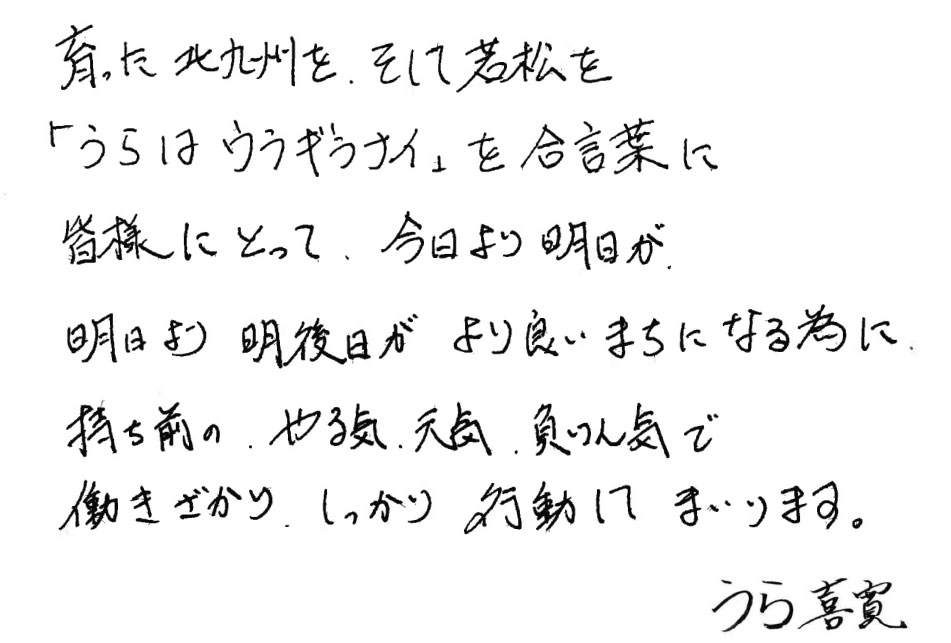 育った北九州を、そして若松を
「うらはウラギラナイ」を合言葉に
皆様にとって、今日より明日が、
明日より明後日がより良いまちになる為に、
持ち前の、やる気、元気、負けん気で
働きざかり、しっかり行動してまいります。
うら喜寛